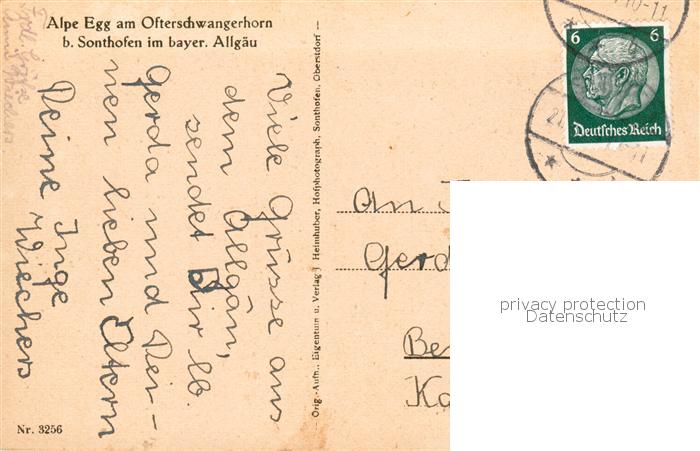 Alpe Egg am Ofterschwangerhorn
b. Sonthofen im bayer. Allgäu
Viele Grüsse aus
dem Allgäu,
sendet Dir lb.
Gerda und Dei-
nen lieben Eltern
Deine Inge
Wiechers
Nr. 3256
– Orig.-Aufn., Eigentum u. Verlag J Heimhuber, Hofphotograph, Sonthofen, Oberstdorf –
10-11
6 6
Deutsches Reich
An
Gerd
Be
Ka
privacy protection
Datenschutz